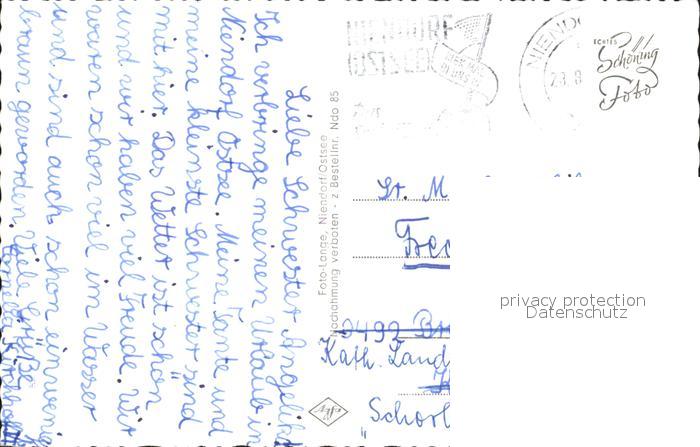 Liebe Schwester Angelika
Ich verbringe meinen Urlaub in
Niendorf Ostsee. Meine Tante und
meine kleinste Schwester sind
mit hier. Das Wetter ist schön
und wir haben viel Freude. Wir
waren schon viel im Wasser
und sind auch schon ein wenig
braun geworden. Viele Grüße
Foto-Lange, Niendorf/Ostsee
Nachahmung verboten - Z Bestellnr. Ndo 85
NIENDORF
OSTSEE
NIENDO
23.8
ECHTES
Schöning
Foto
Sr. M
Frec
3492 Br
Kath. Land
"Schorl
Agfa
privacy protection
Datenschutz